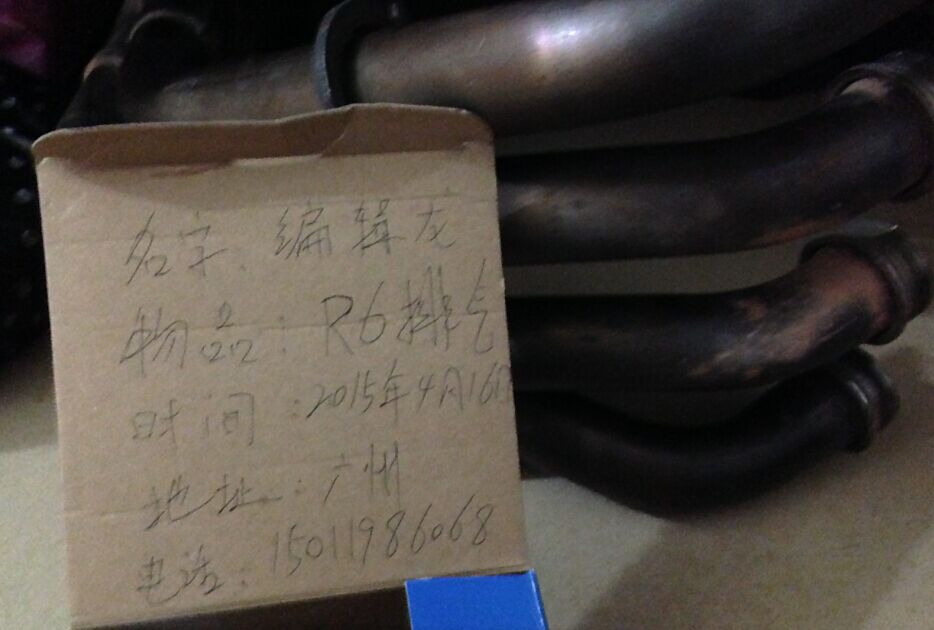 名字:编辑龙
物品:R6排气
时间:2015年4月16日
地址:广州
电话:15011986068